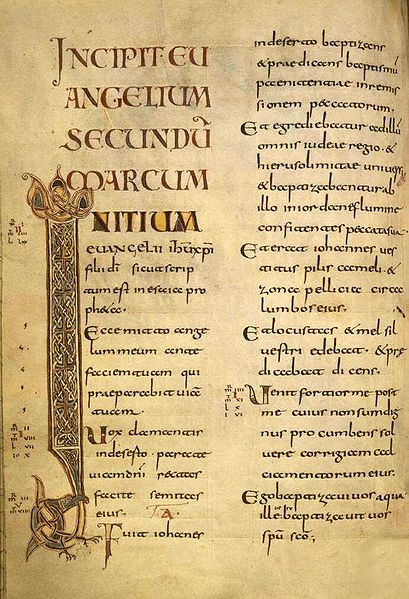 INCIPIT EU
ANGELIUM
SECUNDŪ
MARCUM
INITIUM
evangelii ihū xpī
filii dī sicut scrip
tum est in esaia pro
pheta.
Ecce mitto ange
lum meum ante
faciem tuam qui
praeparabit viam
tuam.
Vox clamantis
in deserto parate
viam dnī rectas
facite semitas
eius.
Fuit iohannes
in deserto baptizans
& praedicans baptismū
paenitentiae in remis
sionem peccatorum.
Et egrediebatur ad illū
omnis iudeae regio. &
hierusolimitae universi
& baptizabantur ab
illo in iordane flumine
confitentes peccata sua.
Et erat iohannes ves
titus pilis cameli. &
zona pellicia circa
lumbos eius.
Et locustas & mel sil
vestri edebat. & prae
dicabat dicens.
Venit fortior me post
me cuius non sum dig
nus procumbens sol
vere corrigiam cal
ciamentorum eius.
Ego baptizavi vos aqua
ille baptizavit vos
spū scō;